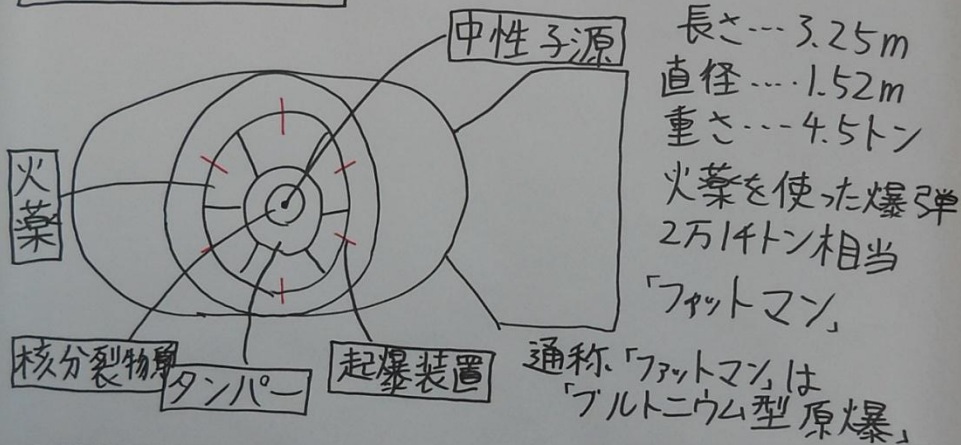 中性子源
火薬
核分裂物質
タンパー
起爆装置
長さ…3.25m
直径….1.52m
重さ…4.5トン
火薬を使った爆弾
2万1千トン相当
「ファットマン」
通称「ファットマン」は
「プルトニウム型原爆」